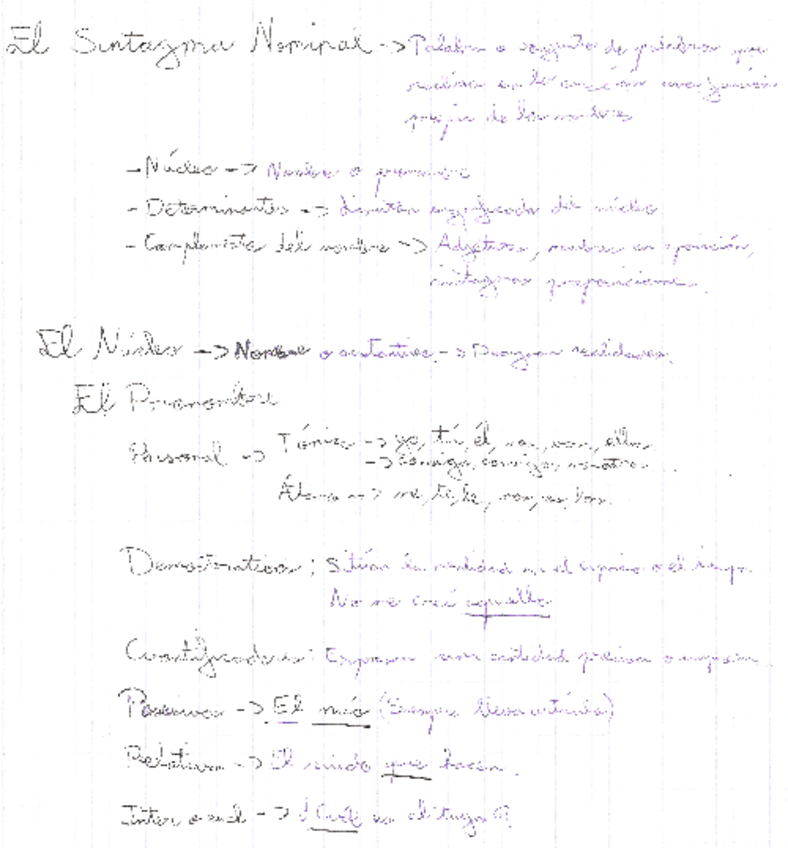 El Sintagma Nominal -> Palabra o conjunto de palabras que
realizan en la oración una función
propia de los nombres
- Núcleo -> Nombre o pronombre
- Determinantes -> Limitan significado del núcleo
- Complemento del nombre -> Adjetivos, nombre en aposición,
sintagmas preposicionales.
El Núcleo -> Nombre o sustantivo -> Designan realidades.
El Pronombre
Personal -> Tónico -> yo, tú, él,
-> conmigo, consigo,
Átono -> me, te, le, nos, os, los.
Demostrativos: Sitúan la realidad en el espacio o el tiempo.
No me creí aquello
Cuantificadores: Expresan una cantidad precisa o imprecisa.
Posesivos -> El mío (Siempre lleva artículo)
Relativos -> El ruido que hacen.
-> ¿Cuál es el tuyo?